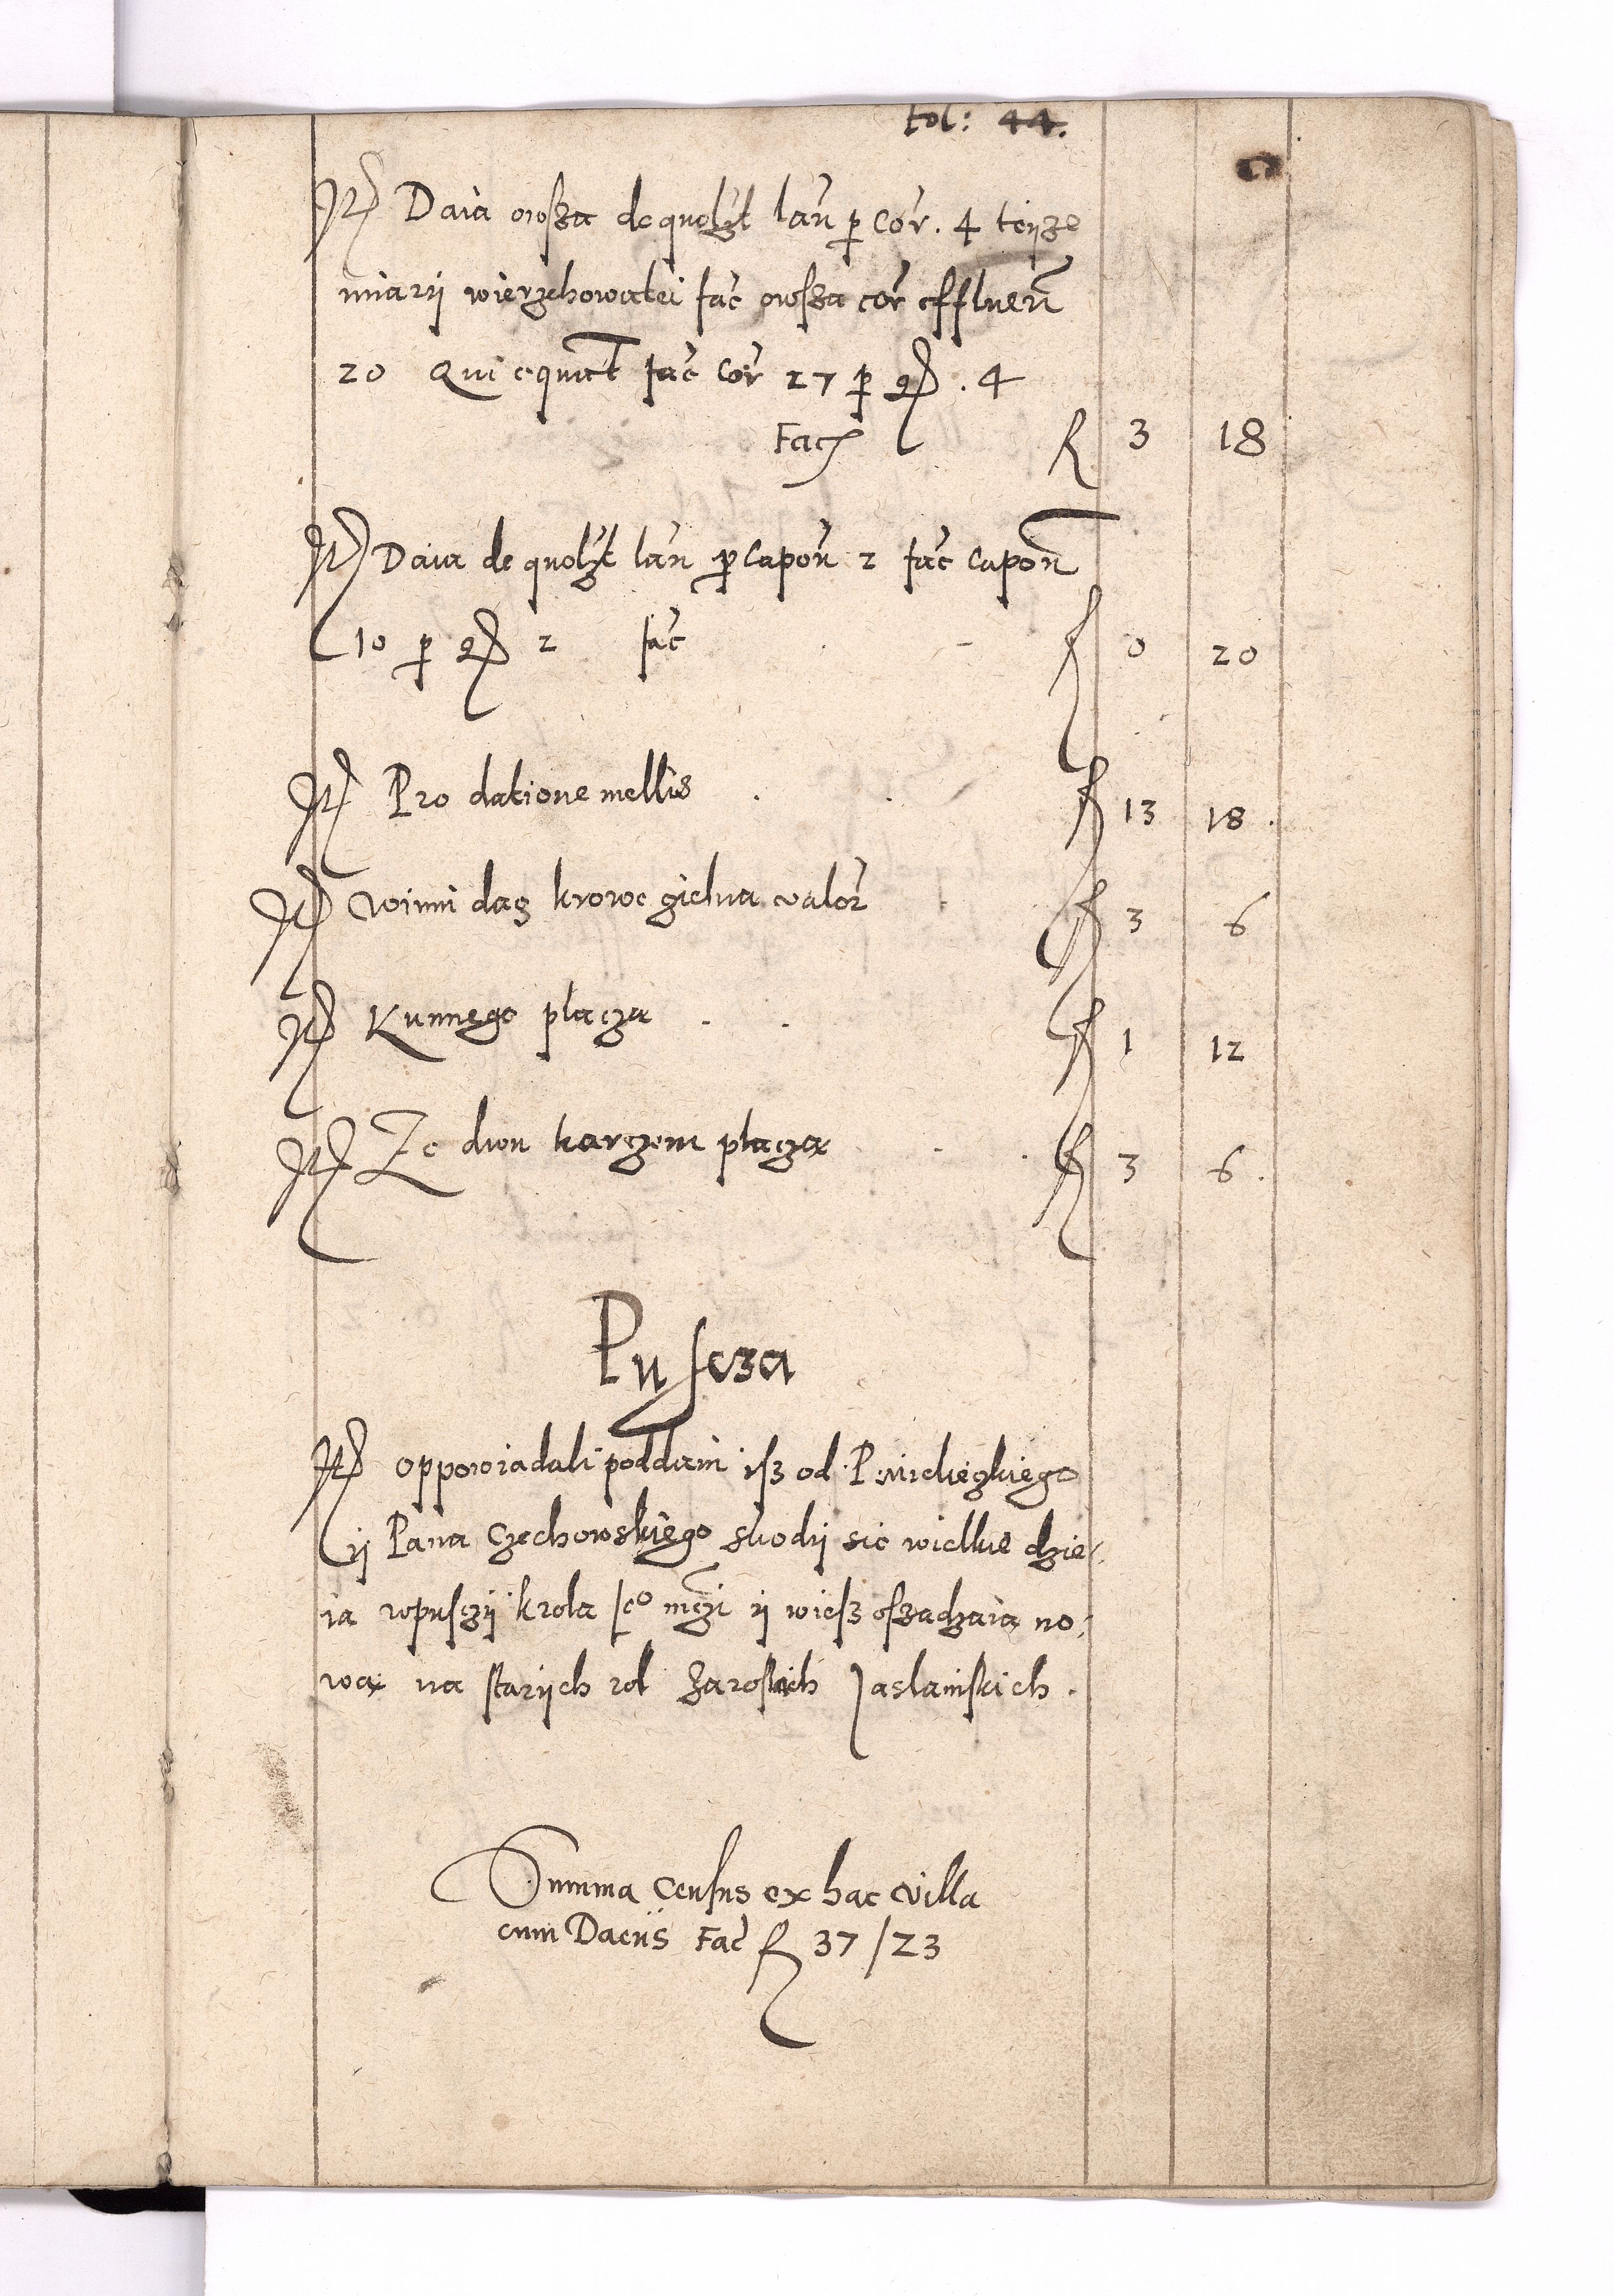 fol: 44.
It Daia owsza de quolzt lan̄ p cor̄. 4 teyze
miary wierzchowatei fac̄ owsza cor̄ effluen̄
20 Qui equat̄ fac̄ Cor̄ 27 p gr. 4
Fac f 3 18
It Daia de quolzt lan̄ p Capon̄ 2 fac̄ Capon̄
10 p gr 2 fac̄ f 0 20
It Pro datione mellis f 13 18.
It Winni dacz krowe gielna valor̄ f 3 6
It Kunnego placza f 1 12
It Ze dwu karczem placza f 3 6.
Puscza
It oppowiadali poddani isz od P
ij Pana Czechowskiego skody sie wielkie dzie-
ia wpusczy krola Jeo mczi y wiesz oszadzaia no-
wa na starych rol zaroslich Jaslainskich.
Summa Census ex hac Villa
cum Daciis Fac̄ f 37/23